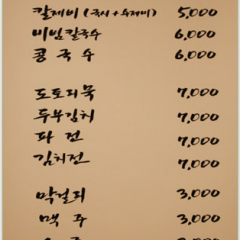 칼제비 (국시+수제비) 5,000
비빔칼국수 6,000
콩국수 6,000
도토리묵 7,000
두부김치 7,000
파전 7,000
김치전 7,000
막걸리 3,000
맥주 3,000